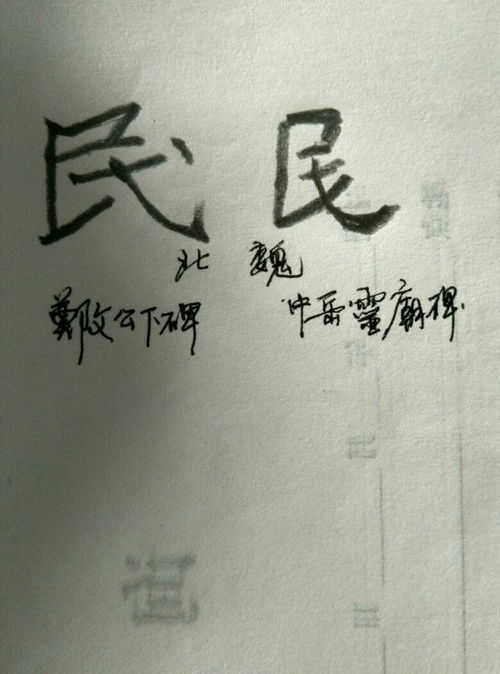 民 民
北 魏
鄭文公下碑 中岳靈廟碑